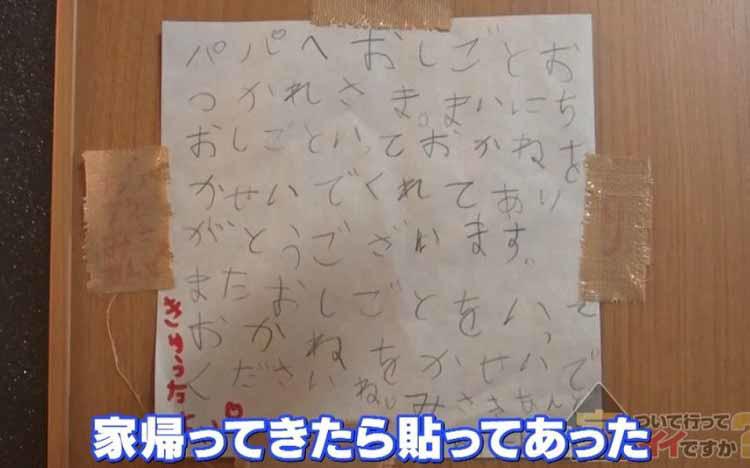 パパへ おしごとお
つかれさま。まいにち
おしごといっておかねを
かせいでくれてあり
がとうございます。
またおしごとをいって
おかねをかせいで
くださいね。みさきちゃん
家帰ってきたら貼ってあった
ついて行って
イイですか